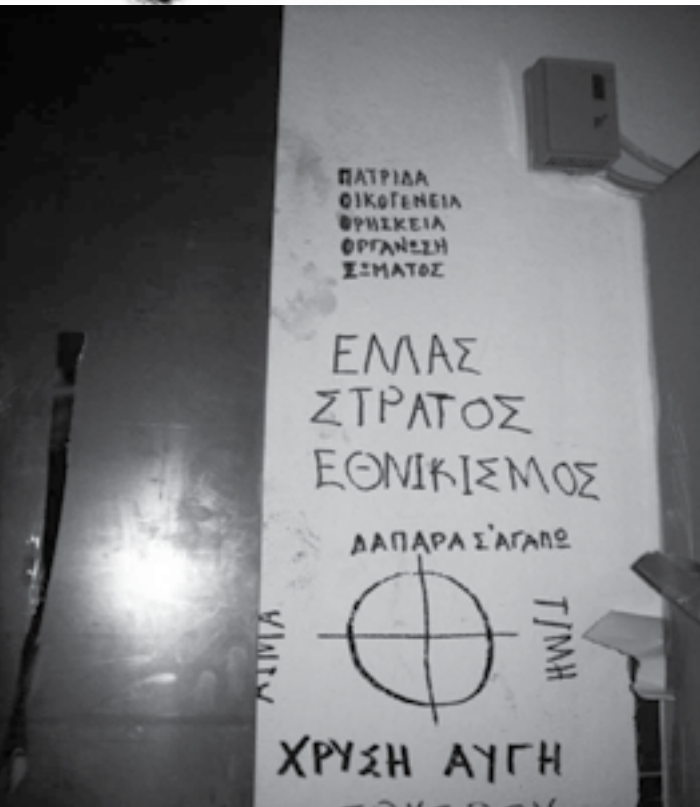 ΠΑΤΡΙΔΑ
ΟΙΚΟΓΕΝΕΙΑ
ΘΡΗΣΚΕΙΑ
ΟΡΓΑΝΩΣΗ
ΣΩΜΑΤΟΣ
ΕΛΛΑΣ
ΣΤΡΑΤΟΣ
ΕΘΝΙΚΙΣΜΟΣ
ΔΑΠΑΡΑ Σ'ΑΓΑΠΩ
ΑΙΜΑ
ΤΙΜΗ
ΧΡΥΣΗ ΑΥΓΗ